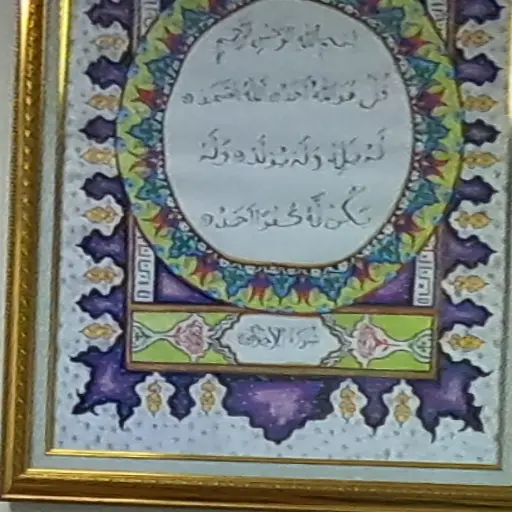 بسم الله الرحمن الرحيم
قل هو الله أحد الله الصمد
لم يلد ولم يولد ولم
يكن له كفوا أحد
سورة الإخلاص